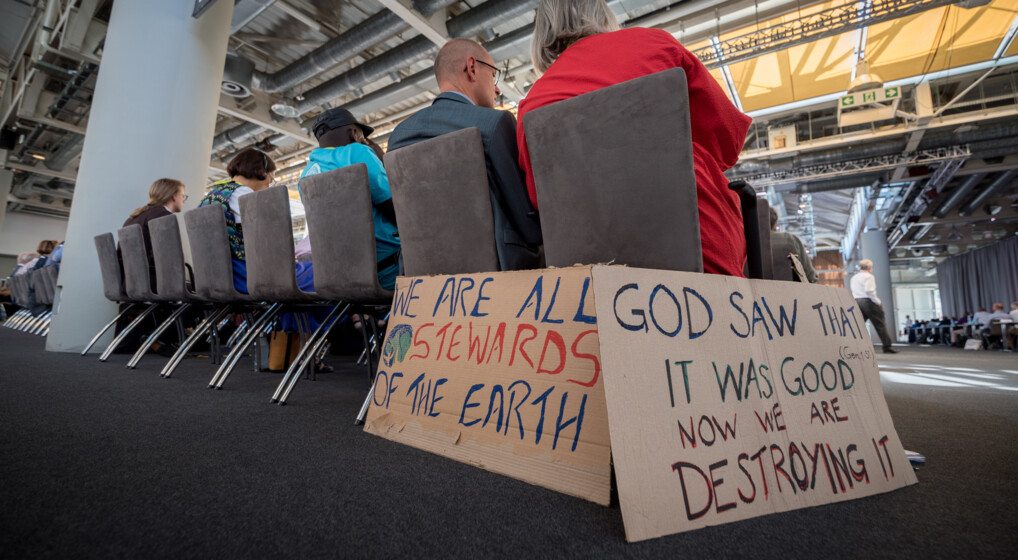 WE ARE ALL
STEWARDS
OF THE EARTH
GOD SAW THAT
IT WAS GOOD
NOW WE ARE
DESTROYING IT